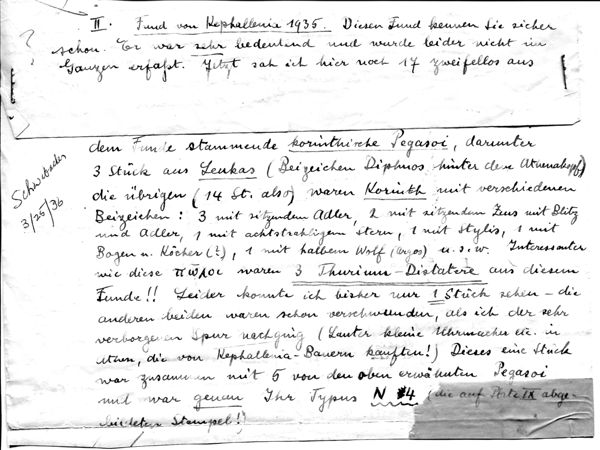 II. Fund von Kephallenia 1935. Diesen Fund kennen Sie sicher
schon. Er war sehr bedeutend und wurde leider nicht im
Ganzen erfaßt. Jetzt sah ich hier noch 17 zweifellos aus
dem Funde stammende korinthische Pegasoi, darunter
3 Stück aus Leukas (Beizeichen Diphros hinter dem Athenakopf)
die übrigen (14 St. also) waren Korinth mit verschiedenen
Beizeichen: 3 mit sitzendem Adler, 2 mit sitzendem Zeus mit Blitz
und Adler, 1 mit achtstrahligem Stern, 1 mit Stylis, 1 mit
Bogen u. Köcher (?), 1 mit halbem Wolf (Argos) u.s.w. Interessanter
wie diese πῶλοι waren 3 Thurium-Distatere aus diesem
Funde!! Leider konnte ich bisher nur 1 Stück sehen - die
anderen beiden waren schon verschwunden, als ich der sehr
verborgenen Spur nachging (Lauter kleine Uhrmacher etc. in
Athen, die von Kephallenia-Bauern kauften!) Dieses eine Stück
war zusammen mit 5 von den oben erwähnten Pegasoi
und war genau Ihr Typus N 4 (die auf Plate IX abge-
bildeten Stempel!)
?
Schwabacher
3/25/36